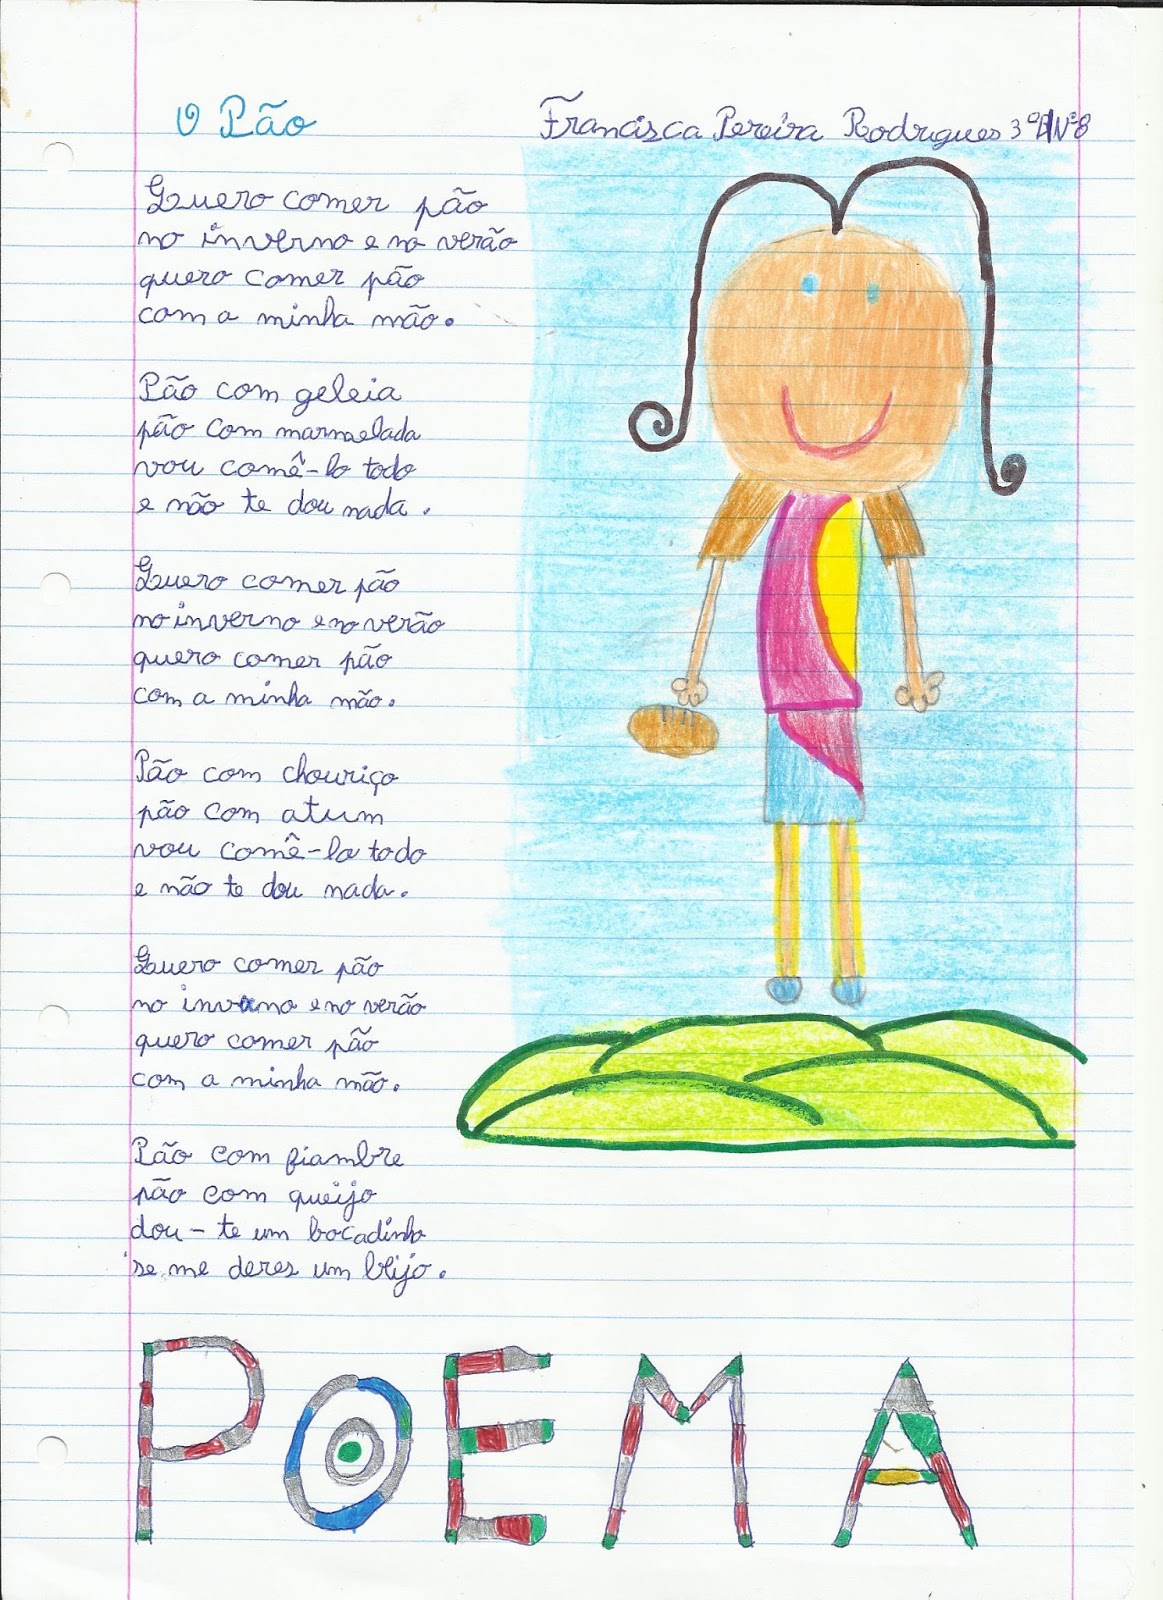 O Pão
Francisca Pereira Rodrigues 3º Nº8
Quero comer pão
no inverno e no verão
quero comer pão
com a minha mão.
Pão com geleia
pão com marmelada
vou comê-lo todo
e não te dou nada.
Quero comer pão
no inverno e no verão
quero comer pão
com a minha mão.
Pão com chouriço
pão com atum
vou comê-lo todo
e não te dou nada.
Quero comer pão
no inverno e no verão
quero comer pão
com a minha mão.
Pão com fiambre
pão com queijo
dou-te um bocadinho
se me deres um beijo.
POEMA